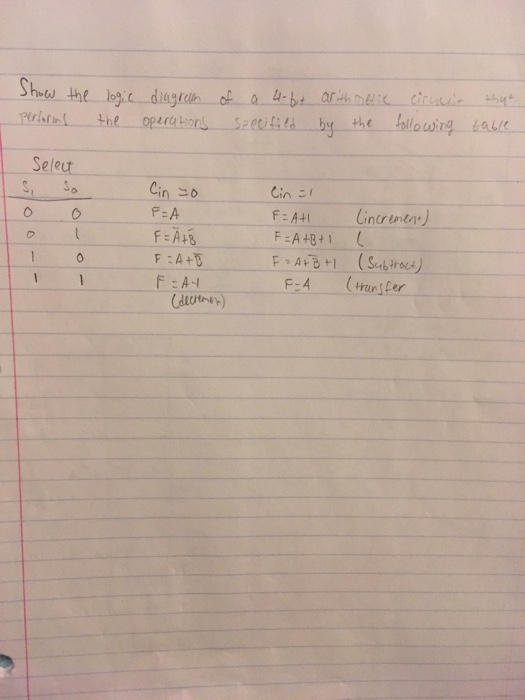 Show the logic diagram of a 4-bit arithmetic circuit that
performs the operations specified by the following table
Select
S₁ S₀ Cin = 0 Cin = 1
0 0 F = A F = A+1 (increment)
0 1 F = Ā+B̄ F = A+B+1 (
1 0 F = A+B̄ F = A+B̄+1 (Subtract)
1 1 F = A-1 F = A (transfer
(decrement)